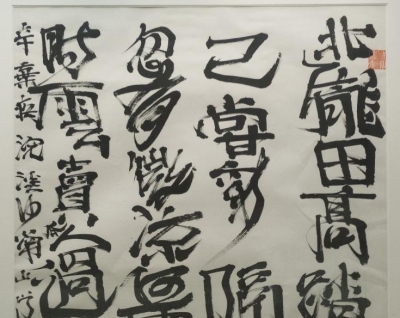 北隴田高踏
已嘗新隔
忽有微涼何
時雲賣瓜人過
辛棄疾浣溪沙常山